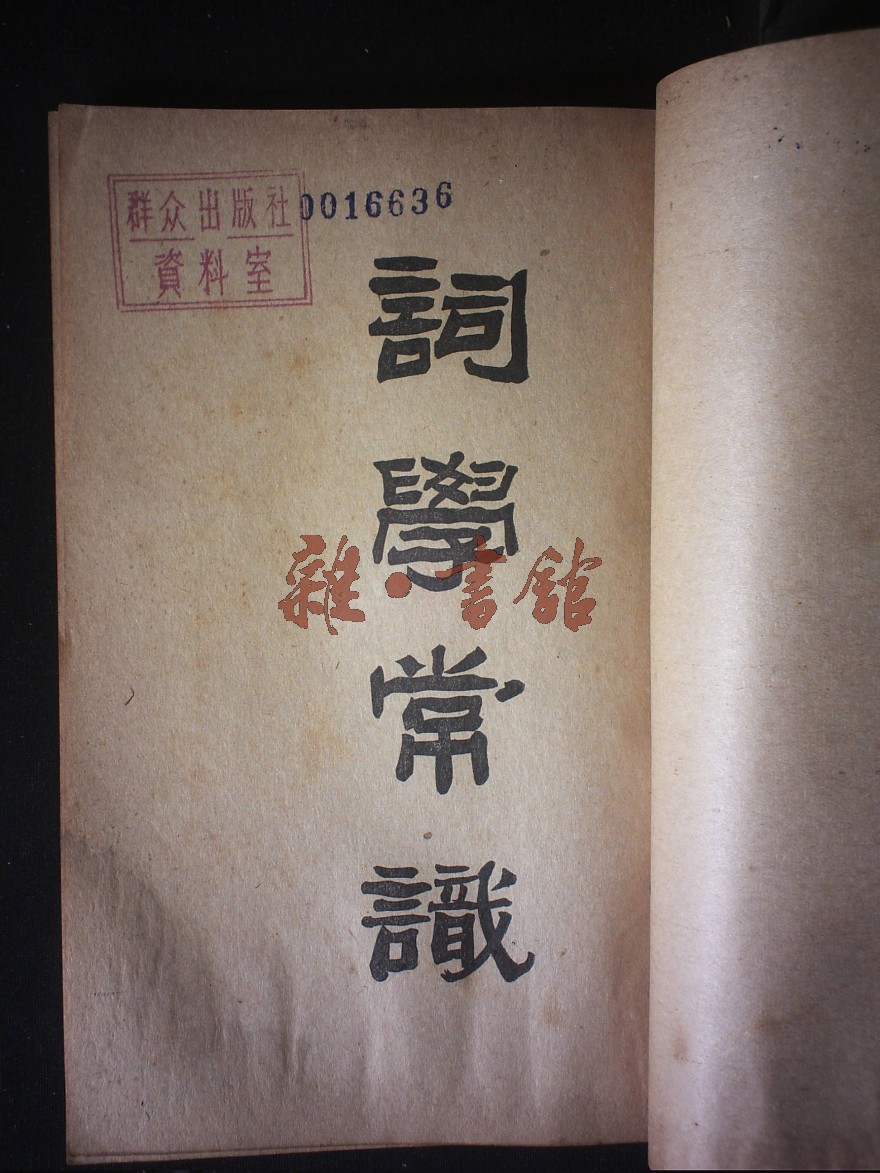 群众出版社
資料室
0016636
詞學常識
雜·書館